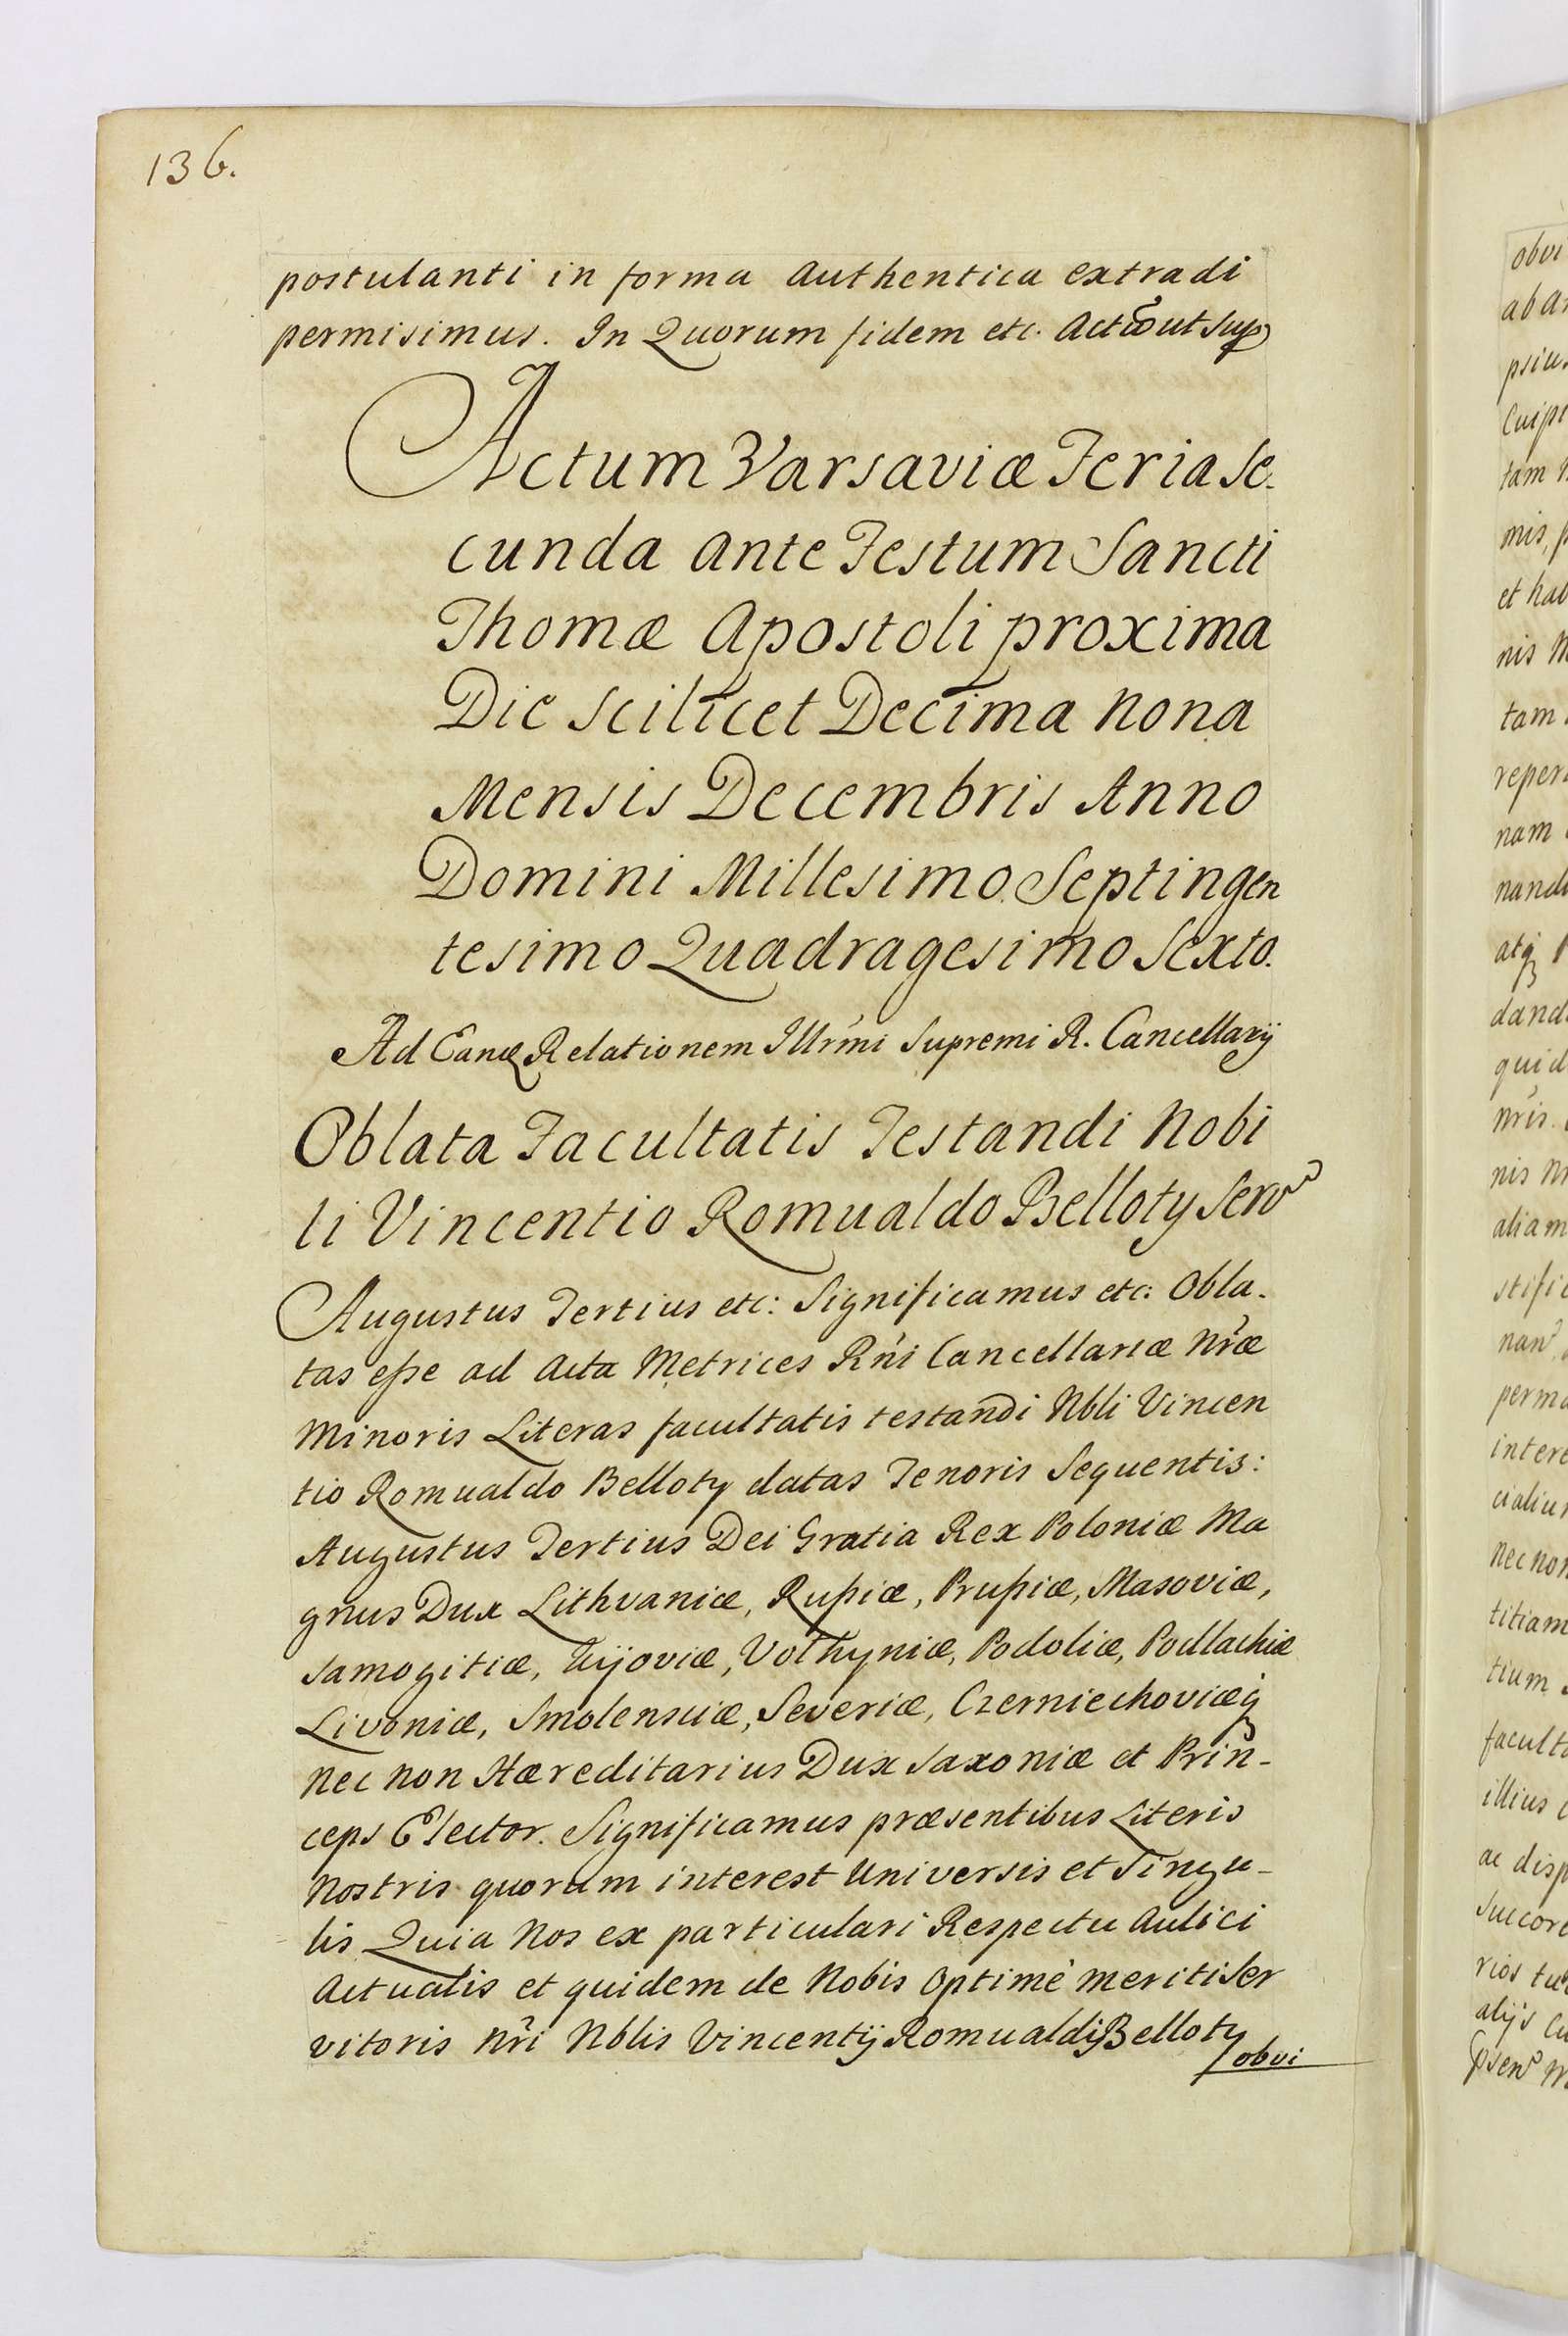 136.
postulanti in forma Authentica extradi
permisimus. In Quorum fidem etc. Actū ut Sup
Actum Varsaviæ Feria Se-
cunda ante Festum Sancti
Thomæ Apostoli proxima
Die scilicet Decima Nona
Mensis Decembris Anno
Domini Millesimo Septingen
tesimo Quadragesimo Sexto.
Ad Eandē Relationem Illrm̃i Supremi R. Cancellarij
Oblata Facultatis Testandi Nobi
li Vincentio Romualdo Belloty Serv
Augustus Tertius etc: Significamus etc: Obla-
tas eſse ad Acta Metrices Rñi Cancellariæ Nr̃æ
Minoris Literas facultatis testandi Nbli Vincen
tio Romualdo Belloty datas Tenoris Sequentis:
Augustus Tertius Dei Gratia Rex Poloniæ Ma
gnus Dux Lithvaniæ, Ruſsiæ, Pruſsiæ, Masoviæ,
Samogitiæ, Kijoviæ, Volhyniæ, Podoliæ, Podlachiæ
Livoniæ, Smolensciæ, Severiæ, Czerniechoviæq
Nec non Hæreditarius Dux Saxoniæ et Prin-
ceps Elector. Significamus præsentibus Literis
Nostris quorum interest Universis et Singu-
lis Quia Nos ex particulari Respectu Aulici
Actualis et quidem de Nobis Optimè meriti Ser
vitoris Nr̃i Nblis Vincentij Romualdi Belloty
obvi
obvi
psiu
tam
mis, p
et hab
nis
tam
reper
nam
nandi
atq
dand
quid
nr̃is
nis
aliam
stifi
perma
inter
cialiu
Nec non
titiam
tium
facult
illius
ac disp
Succor
rios
alijs